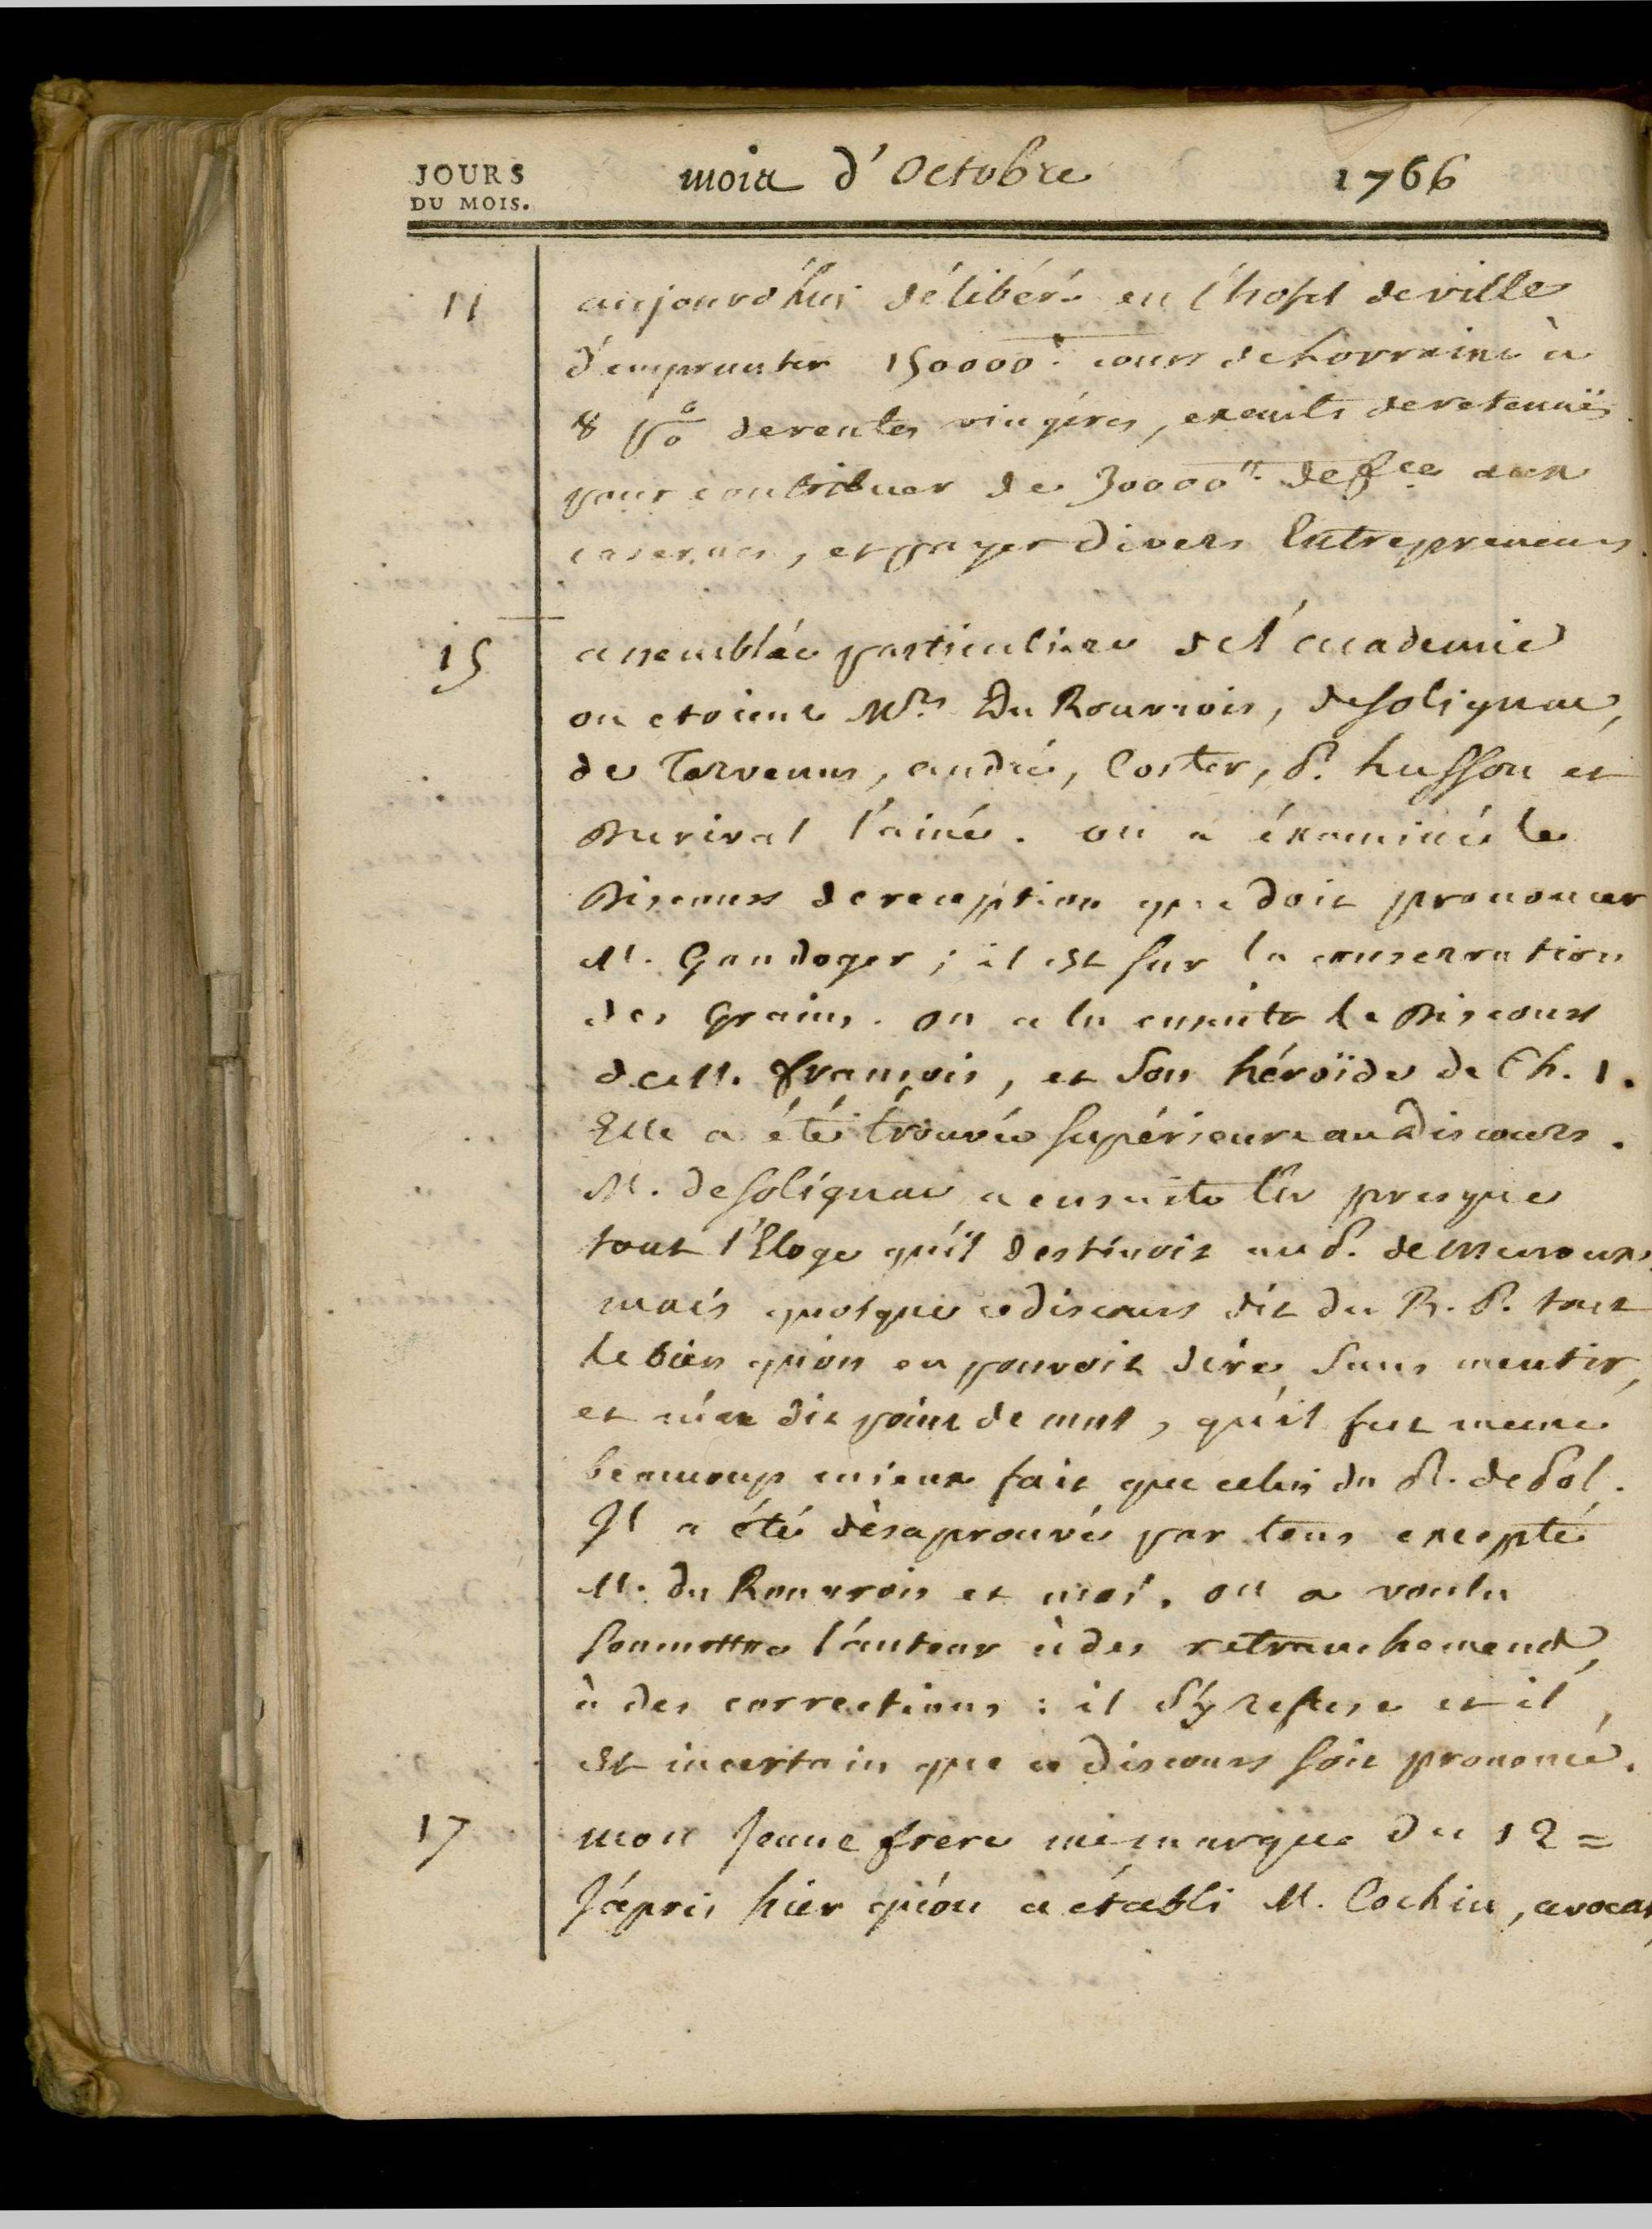 JOURS
DU MOIS.
mois d'Octobre 1766
11 aujourd'hui délibéré en l'hotel de ville
d'emprunter 150000 ll. cours de Lorraine à
8 p% de rentes viagères, exemts de retenuës
pour contribuer de 30000 ll. de fce aux
casernes, et payer divers Entrepreneurs.
15 assemblée particuliere de l'academie
ou etoient Mrs. Du Rouvrois, de Solignac,
de Tervenus, andré, Coster, P. husson et
Durival l'ainé. on a éxaminé le
Discours de reception que doit prononcer
M. Gandoger ; il est sur la conservation
des Grains. on a lu ensuite le Discours
de M. françois, et son héroïde de Ch. 1.
Elle a été trouvée supérieure au discours.
M. de Solignac a ensuite lu presque
tout l'Eloge qu'il destinoit au P. de Menoux,
mais quoique ce discours dit du R. P. tout
le bien qu'on en pouvoit dire sans mentir,
et n'en dit point de mal, qu'il fut meme
beaucoup mieux fait que celui du R. de Pol.
Il a été désaprouvé par tous excepté
M. du Rouvrois et moi. on a voulu
soumettre l'auteur à des retranchemens,
à des corrections : il s'y refuse et il
est incertain que ce discours soit prononcé.
17 mon Jeune frere me marque du 12 =
J'apris hier qu'on a établi M. Cochin, avocat,